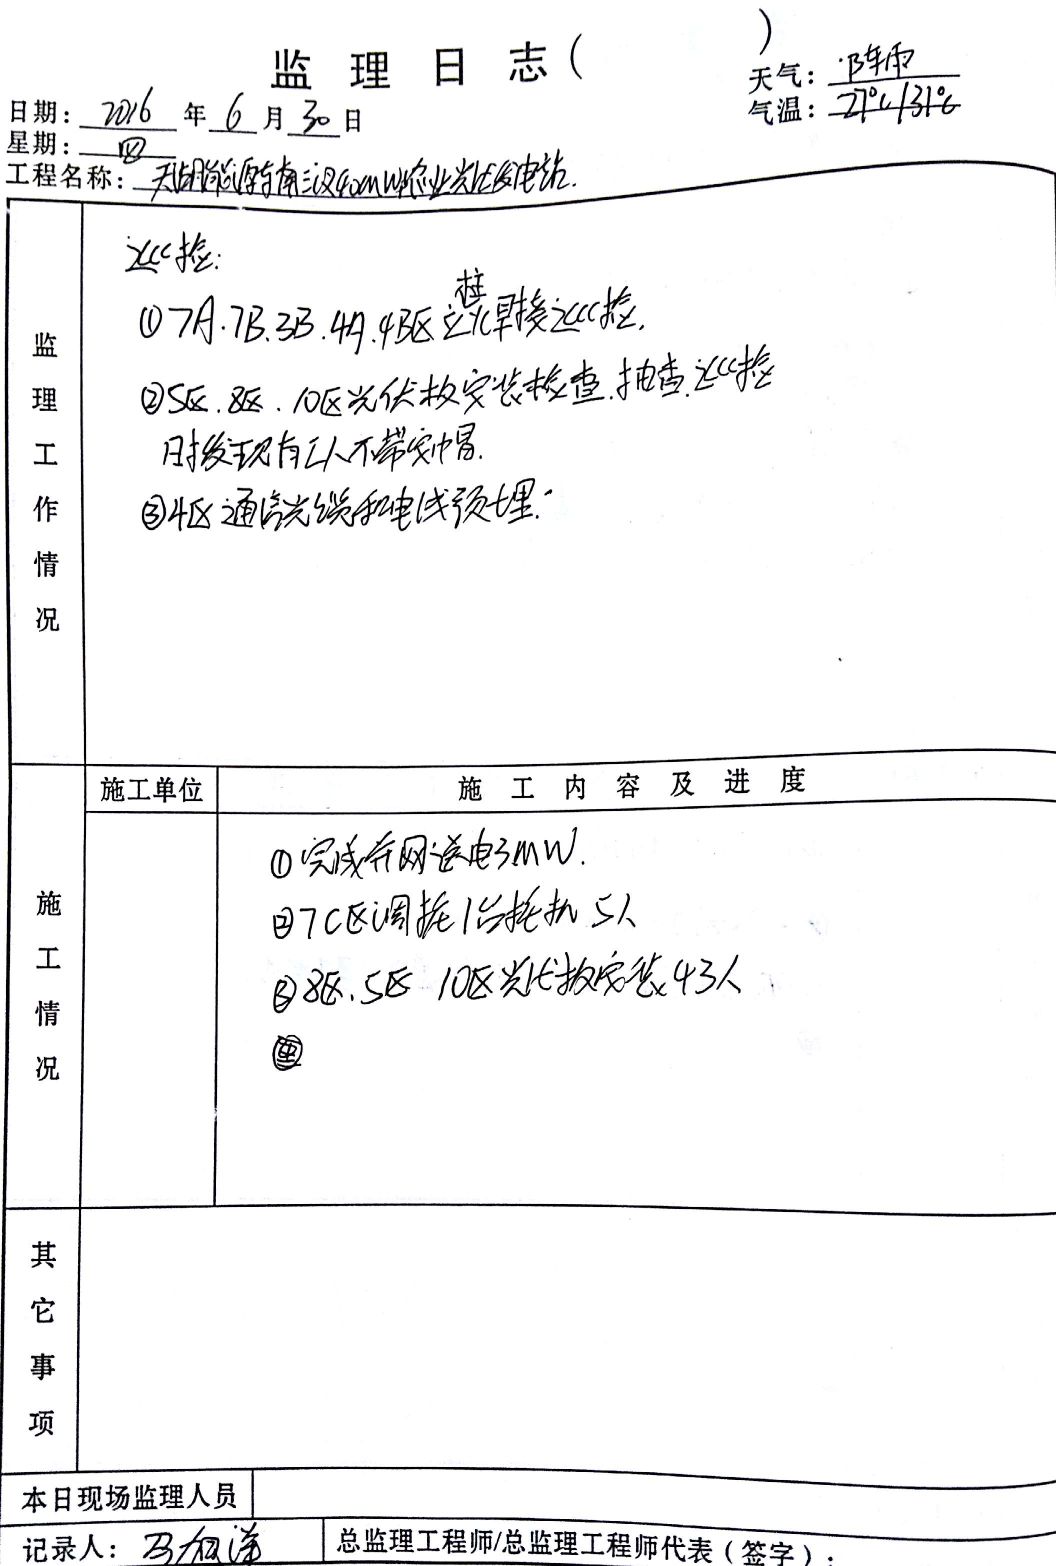 监理日志( )
天气: 阵雨
日期: 2016 年 6 月 30 日
气温: 27℃/31℃
星期: 四
工程名称: 南三 40MW 农业光伏发电站.
监理工作情况
巡检:
①7A.7B.3B.4A.4B区立柱焊接巡检.
②5区.8区.10区光伏板安装检查.抽查.巡检
时发现有工人不带安帽.
③4区通信光缆和电线预埋.
施工单位
施工内容及进度
施工情况
①完成并网送电3MW.
②7C区调桩1台桩机 5人
③8区、5区 10区光伏板安装43人
其它事项
本日现场监理人员
记录人: 马
总监理工程师/总监理工程师代表(签字):